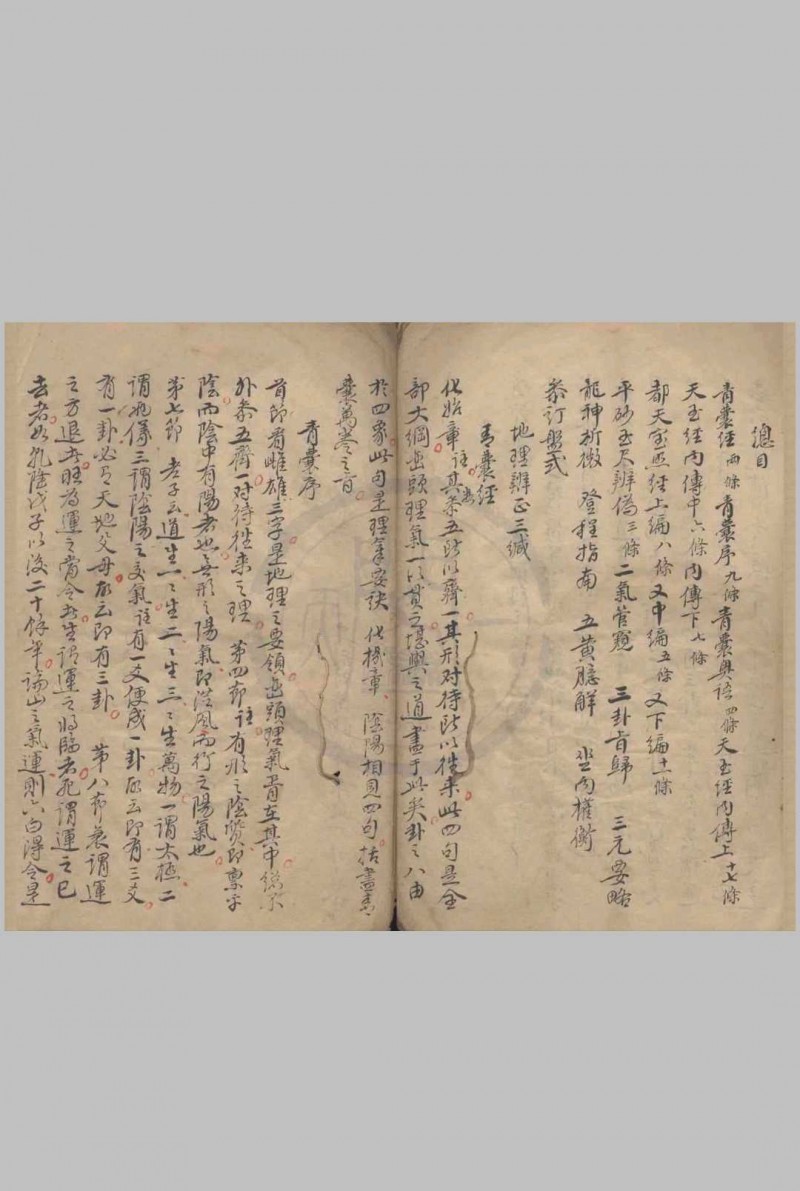 總目
青囊經兩條青囊序九條青囊奧語四條天玉經內傳上十七條
天玉經內傳中六條內傳下七條
都天寶照經上編八條又中編五條又下編十一條
平砂玉尺辨偽三條二氣管窺 三卦旨歸 三元要略
龍神折微 登程指南 五黃臆解 坐向權衡
參訂盤式
地理辨正三緘
青囊經
化始章註其泰五階以齊一其形对待階以徃来此四句是全
部大綱出頭理氣一以貫之堪輿之道盡于此矣卦之八由
於四象此句是理氣要诀 化機章 陰陽相見四句括盡青
囊萬卷之旨
青囊序
首節看雌雄三字是地理之要領出頭理氣胥在其中
外泰五齊一对待徃来之理 第四節註有形之陰質即禀乎
陰而陰中有陽者也無形之陽氣即從風而行之陽氣也
第七節 老子云道生一一生二二生三三生萬物一謂太極二
謂兩儀三謂陰陽之交氣註有一爻便成一卦所云即有三爻
有一卦必有天地父母所云即有三卦 第八節衰謂運
之方退者旺為運之當令者生謂運之将臨者死謂運之已
去者如乳陰戊子以後二十餘年論山之氣運則六白得令是